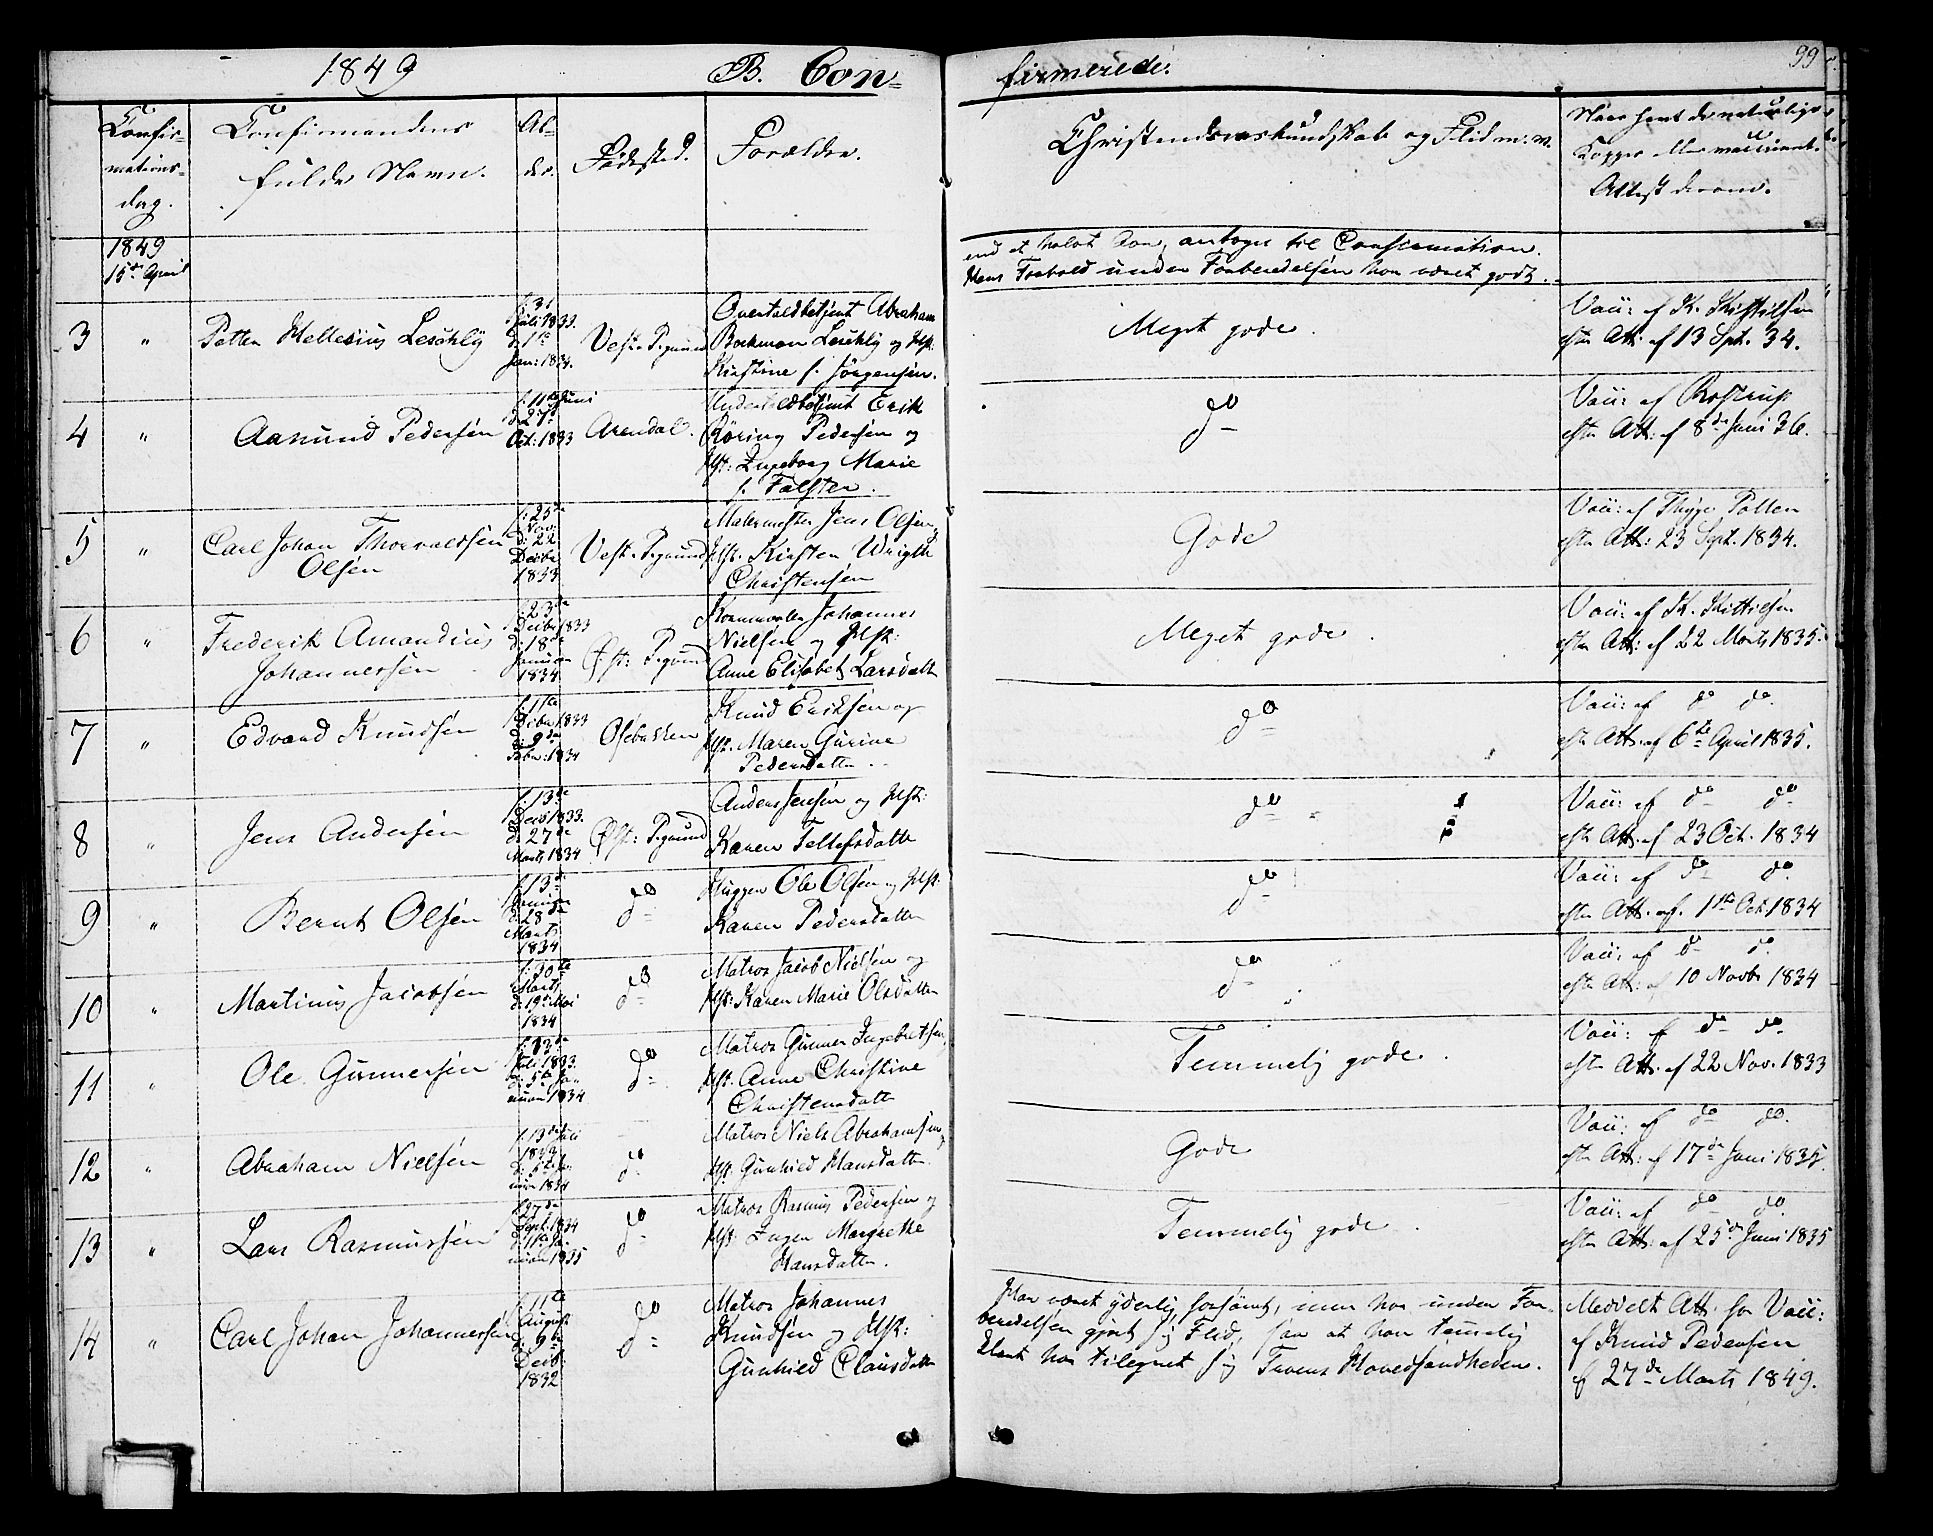 1849 B. Con-
firmerede.
99
Confir-
mations-
dag.
Confirmandens
fulde Navn.
Al-
der.
Fødested.
Forældre.
Christendomskundskab og Flid m: m.
Naar havt de naturlige
Kopper eller vaccineret
Attest derom.
1849
15de April
end et halvt Aar, antoges til Confirmation.
Hans Forhold under Forberedelsen har været godt.
3 " Potter Leschly
f: 31
Juli 1833.
d: 1te
Jan: 1834.
Vest: Prgrund
Overtoldbetjent Abraham
Leschly og Hst:
Kirstine f. Jørgensen.
Meget gode.
Vac: af K. Kittilsen
efter Att: af 13 Spt. 34.
4 " Aamund Pedersen
f: 11te Juni
d: 27de
Oct: 1833
Arendal.
Undertoldbetjent Erik
Röring Pedersen og
Hst: Ingeborg Marie
f. Falsten.
do
Vac: af Rostrup
efter Att: af 8de Juni 36.
5 " Carl Johan Thorvaldsen
Olsen
f: 25de
Nov.
d: 22
Decbr
1833
Vest: Prgrund
Malermester Jens Olsen,
Hst. Kirsten Wrigth
Christensen
Gode
Vac: af Thyge Potter
efter Att: 23 Sept. 1834.
6 " Frederik Amandius
Johannessen
f: 23de
Decbr 1833
d: 18de
Januar
1834
Øst: Prgrund
Johannes
Nielsen og Hst:
Anne Elisabet Larsdatter
Meget gode.
Vac: af K. Kittilsen
efter Att: af 22 Marts 1835.
7 " Edvard Knudsen
f: 11te
Decbr 1833
d: 9de
Febr: 1834
Osebakken
Knud Eriksen og
Hst. Maren Gurine
Pedersdatter.
do
Vac: af do do.
efter Att: af 6te April 1835.
8 " Jens Andersen
f: 13de
Decb 1833.
d: 27de
Marts 1834
Øst: Prgrund
Anders Jensen og Hst:
Karen Tellefsdatter
do
Vac: af do do
efter Att: af 23 Oct. 1834
9 " Bernt Olsen
f: 13de
Januar
d: 28de
Marts
1834
do
Ole Olsen og Hst:
Karen Pedersdatter
do
Vac: af do do.
efter Att: af 1te Oct. 1834
10 " Martinus Jacobsen
f: 30te
Marts
d: 19de Mai
1834
do
Matros Jacob Nielsen og
Hst: Karen Marie Olsdatter
do
Vac: af do do.
efter Att: af 10 Novbr 1834
11 " Ole Gunnersen
f: 13de
Juli 1833.
d: 5te Ja-
nuar 1834
do
Matros Gunner Ingebretsen,
Hst. Anne Christine
Christensdatter
Temmelig gode.
Vac: af do do
efter Att: af 22 Nov. 1833
12 " Abraham Nielsen
f. 13de Juli
d: 5te Ja-
nuar 1834
do
Matros Niels Abrahamsen,
Hst. Gunhild Hansdatter.
Gode
Vac: af do do.
efter Att: af 17de Juni 1835.
13 " Lars Rasmussen
f. 27de
Sept. 1834
d: 11te Ja-
nuar 1835
do
Matros Rasmus Pedersen og
Hst: Inger Margrethe
Hansdatter.
Temmelig gode.
Vac: af do do.
efter Att: af 25de Juni 1835
14 " Carl Johan Johannessen
f. 11te
August
d: 9de
Decb:
1832
do
Matros Johannes
Knudsen og Hst:
Gunhild Clausdatter
Har været yderlig forsømt, men har under For-
beredelsen gjort sig Flid, saa at han temelig
klart har tilegnet sig Troens Hovedsandheder.
Meddelt Att. for Vac:
af Knud Pedersen
af 27de Marts 1849.